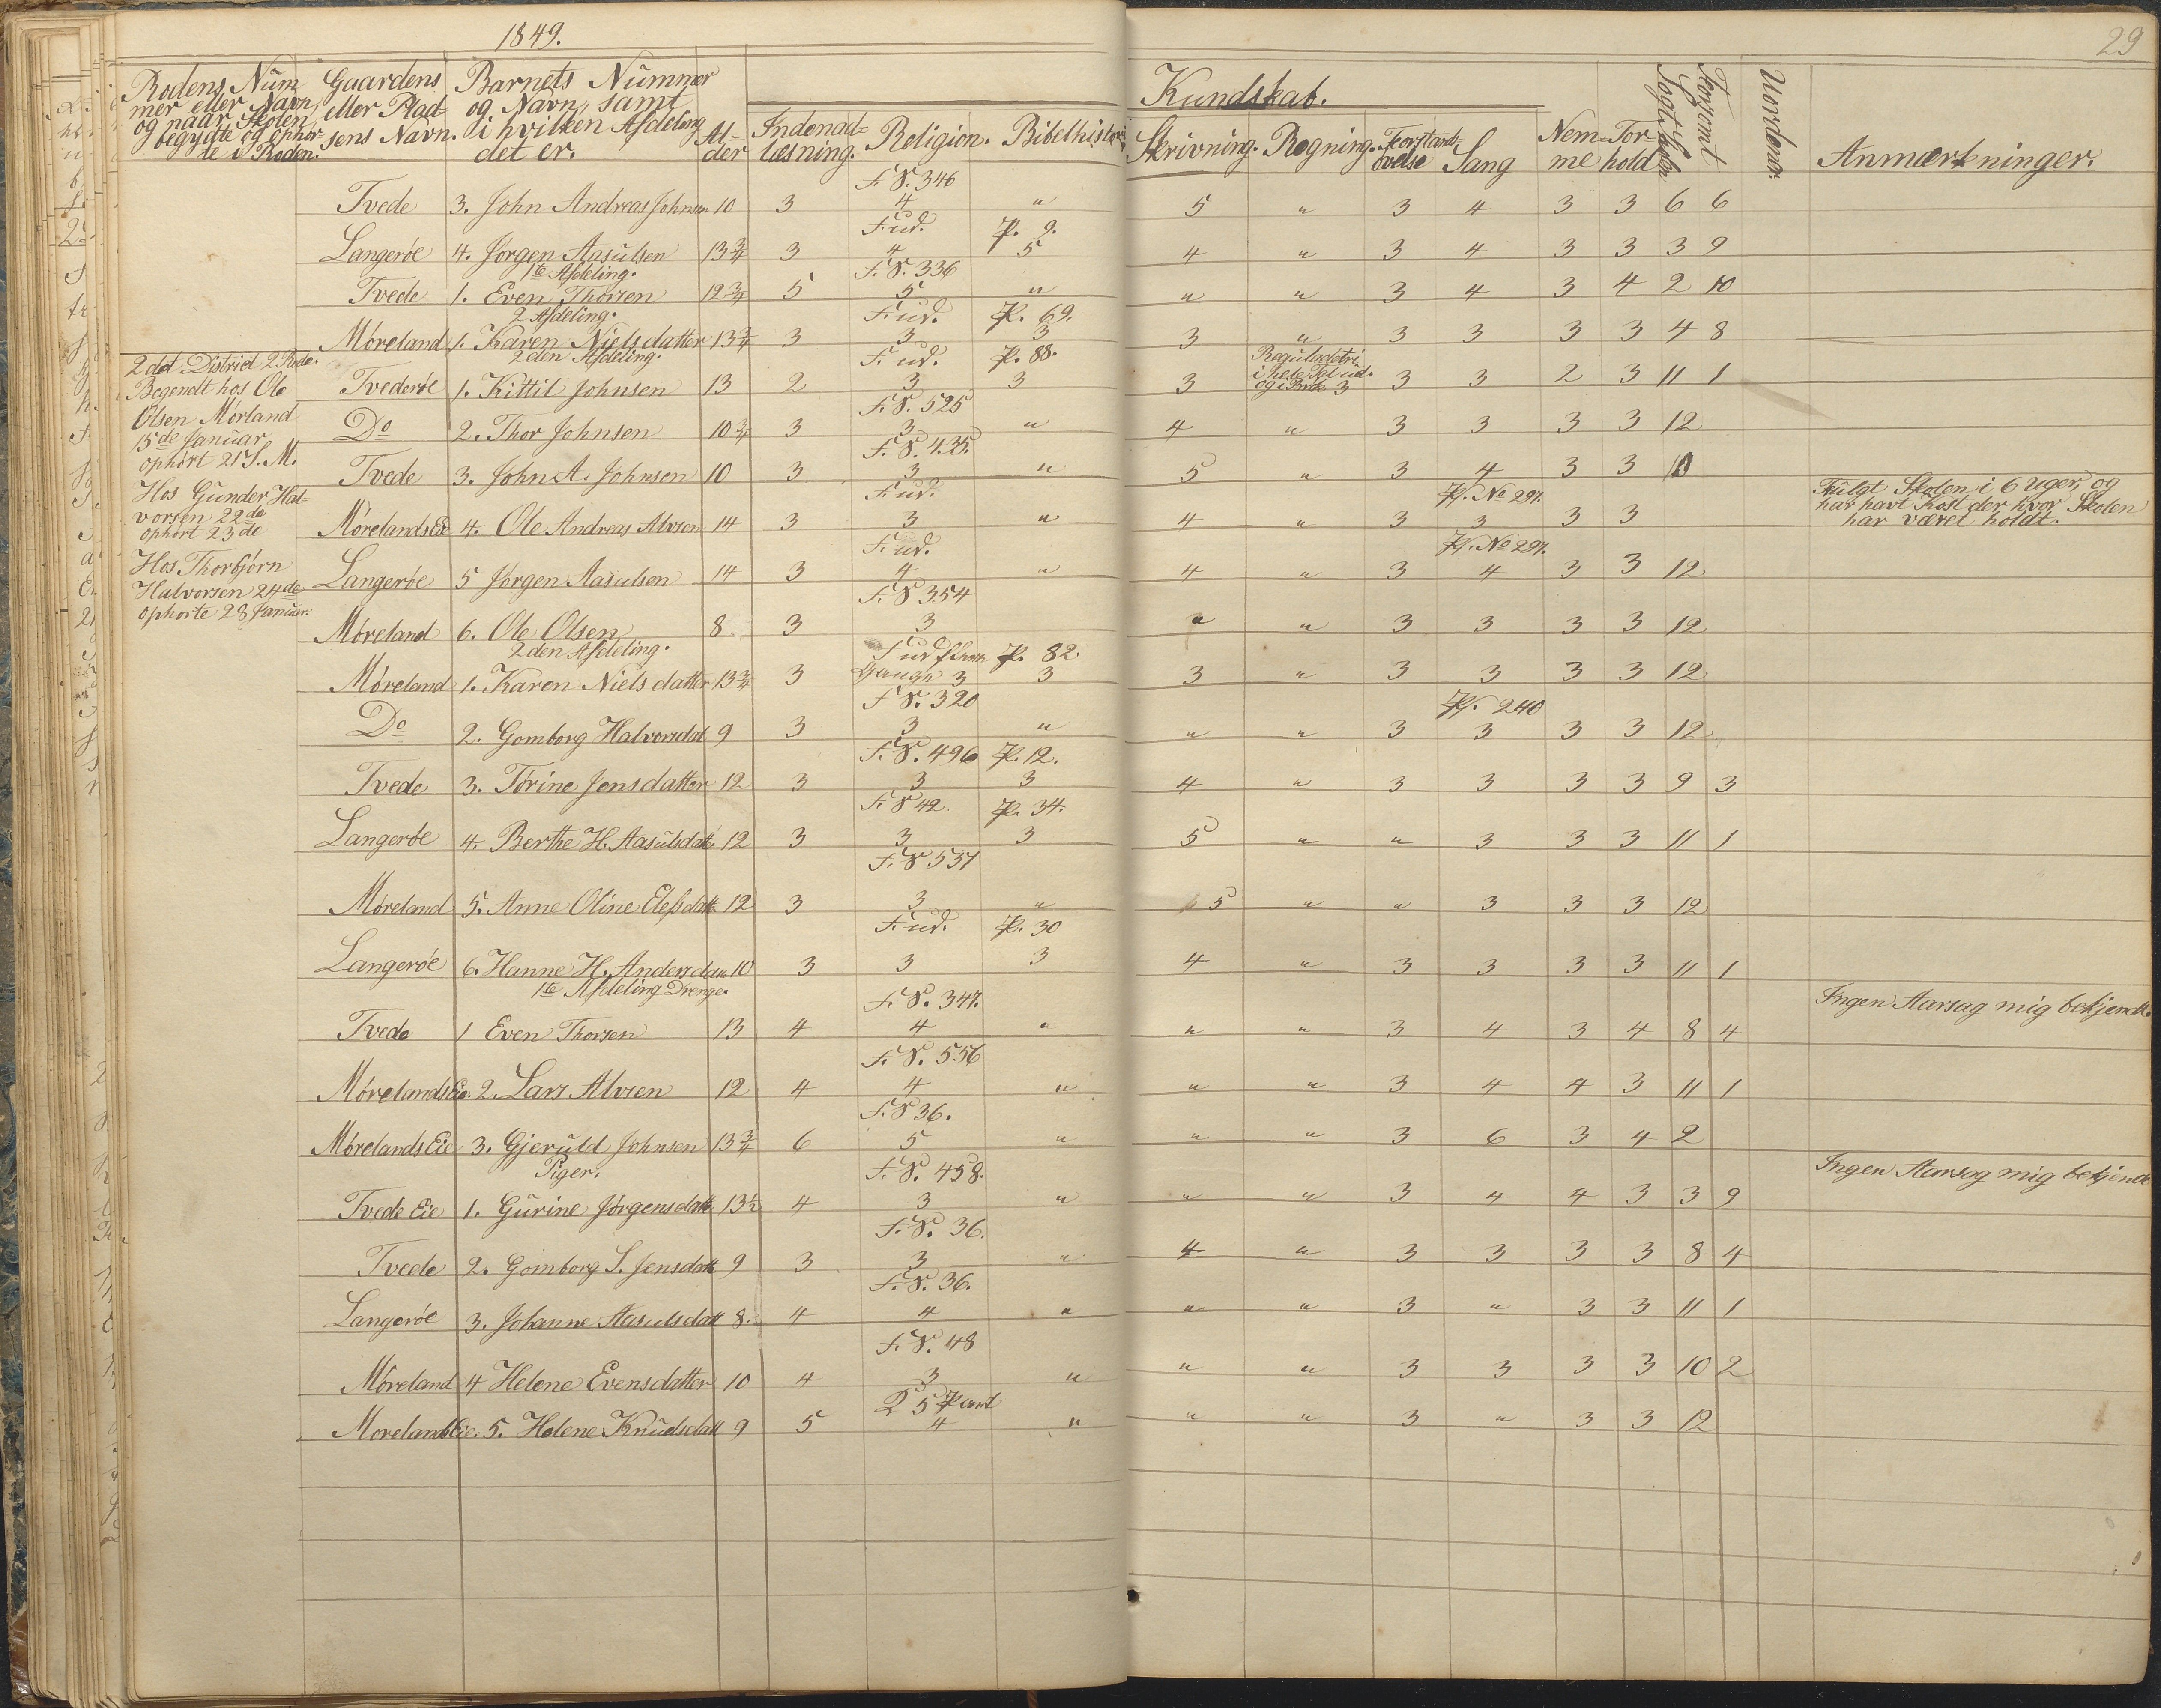 1849.
29
Rodens Num
mer eller Navn,
og naar Skolen
begyndte og ophør
te i Roden.
Gaardens
eller Plad-
sens Navn.
Barnets Nummer
og Navn, samt
i hvilken Afdeling
det er.
Al-
der
Kundskab.
Indenad-
læsning.
Religion.
Bibelhistorie
Skrivning.
Regning.
Forstands
øvelse
Sang
Nem-
me
For-
hold
Søgt Skolen
Forsømt
Uordener.
Anmærkninger.
F. S. 346
Tvede 3. John Andreas Johnsen 10 3 4 " 5 " 3 4 3 3 6 6
F. ud. P. 9.
Langerøe 4. Jørgen Aasulsen 13 3/4 3 4 5 4 " 3 4 3 3 3 9
1te Afdeling. F. S. 336
Tvede 1. Even Thorsen 12 3/4 5 5 " " " 3 4 3 4 2 10
2 Afdeling. F. ud. P. 69.
Møreland 1. Karen Nielsdatter 13 3/4 3 3 3 3 " 3 3 3 3 4 8
2det District 2 Rode.
Begyndt hos Ole
Olsen Mørland
15de Januar
ophørt 21 S. M.
Hos Gunder Hal-
vorsen 22de
ophørt 23de
Hos Thorbjørn
Halvorsen 24de
ophørte 28 Januar.
2den Afdeling. F. ud. P. 88. Reguladetri
i hele Tal ud.
og i Brøk 3
Tvederøe 1. Kittil Johnsen 13 2 3 3 3 3 3 2 3 11 1
F. S. 525
Do 2. Thor Johnsen 10 3/4 3 3 " 4 " 3 3 3 3 12
F. S. 435.
Tvede 3. John A. Johnsen 10 3 3 " 5 " 3 4 3 3
F. ud. Ps. No 297.
Mørelands Eie 4. Ole Andreas Alvsen 14 3 3 " 4 " 3 3 3 3
Fulgt Skolen i 6 Uger, og
har havt Kost der hvor Skolen
har været holdt.
F. ud. Ps. No 297.
Langerøe 5 Jørgen Aasulsen 14 3 4 " 4 " 3 4 3 3 12
F. S 354
Møreland 6. Ole Olsen 8 3 3 " " 3 3 3 3 12
2den Afdeling. F ud P. 82
Møreland 1. Karen Nielsdatter 13 3/4 3 3 3 3 " 3 3 3 3 12
F S. 320 Ps. 240
Do 2. Gomborg Halvorsdat 9 3 3 " " " 3 3 3 3 12
F. S. 496 P. 12.
Tvede 3. Torine Jensdatter 12 3 3 3 4 " 3 3 3 3 9 3
F. S 42. P. 34.
Langerøe 4. Berthe H. Aasulsdatt. 12 3 3 3 5 " " 3 3 3 11 1
F. S 537
Møreland 5. Anne Oline Elefsdatt. 12 3 3 " 5 " " 3 3 3 12
F. ud. P. 30
Langerøe 6. Hanne H. Andersdatt. 10 3 3 3 4 " 3 3 3 3 11 1
1te Afdeling Drenge. F. S. 347.
Tvede 1 Even Thorsen 13 4 4 " " " 3 4 3 4 8 4
Ingen Aarsag mig bekjendt.
F. S. 556
Mørelands Eie. 2. Lars Alvsen 12 4 4 " " " 3 4 4 3 11 1
F. S 36.
Mørelands Eie 3. Gjeruld Johnsen 13 3/4 6 5 " " " 3 6 3 4 2
Piger. F. S. 458.
Tvede Eie 1. Gurine Jørgensdatt. 13 1/2 4 3 " " " 3 4 4 3 3 9
Ingen Aarsag mig bekjendt
F. S. 36.
Tvede 2. Gomborg S. Jensdatt 9 3 3 " 4 " 3 3 3 3 8 4
F. S. 36.
Langerøe 3. Johanne Aasulsdatt 8. 4 4 " " " 3 " 3 3 11 1
F. S. 48
Møreland 4 Helene Evensdatter 10 4 3 " " " 3 3 3 3 10 2
2 5 Part
Morelands Eie. 5. Helene Knudsdatt 9 5 4 " " " 3 " 3 3 12